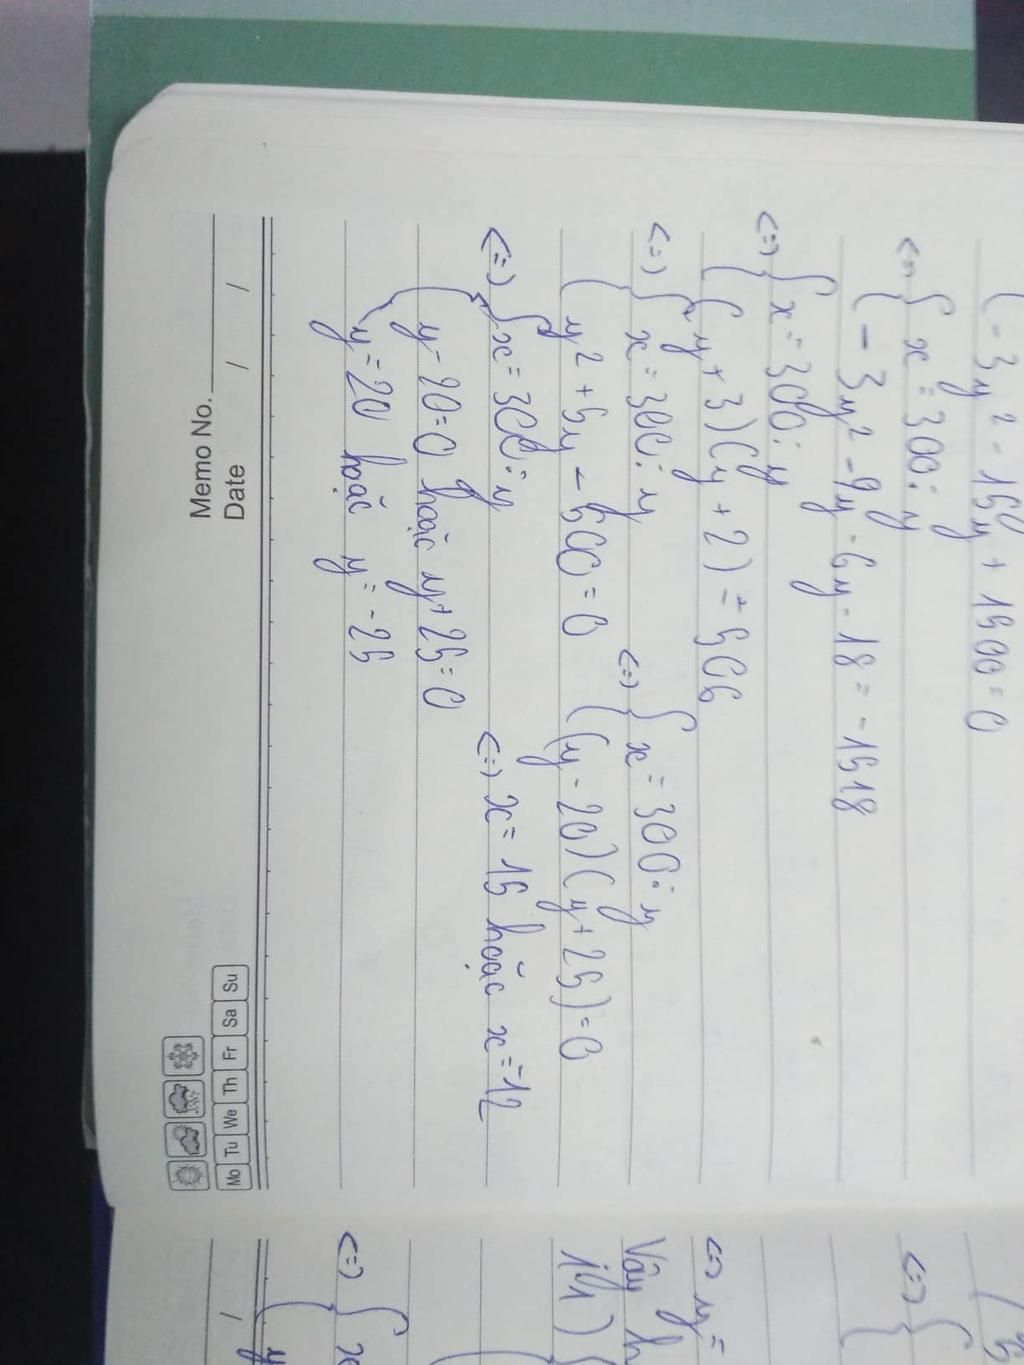 - 3y² - 15y + 1500 = 0
<=> { x = 300 : y
{ - 3y² - 9y - 6y - 18 = - 1518
<=> { x = 300 : y
{ (y + 3)(y + 2) = 506
<=> { x = 300 : y
{ y² + 5y - 500 = 0
<=> { x = 300 : y
{ (y - 20)(y + 25) = 0
<=> { x = 300 : y
{ y - 20 = 0 hoặc y + 25 = 0
<=> x = 15 hoặc x = 12
{ y = 20 hoặc y = - 25
Memo No.
Date / /
Mo Tu We Th Fr Sa Su
<=> {
<=> y =
Vậy h
<=> {